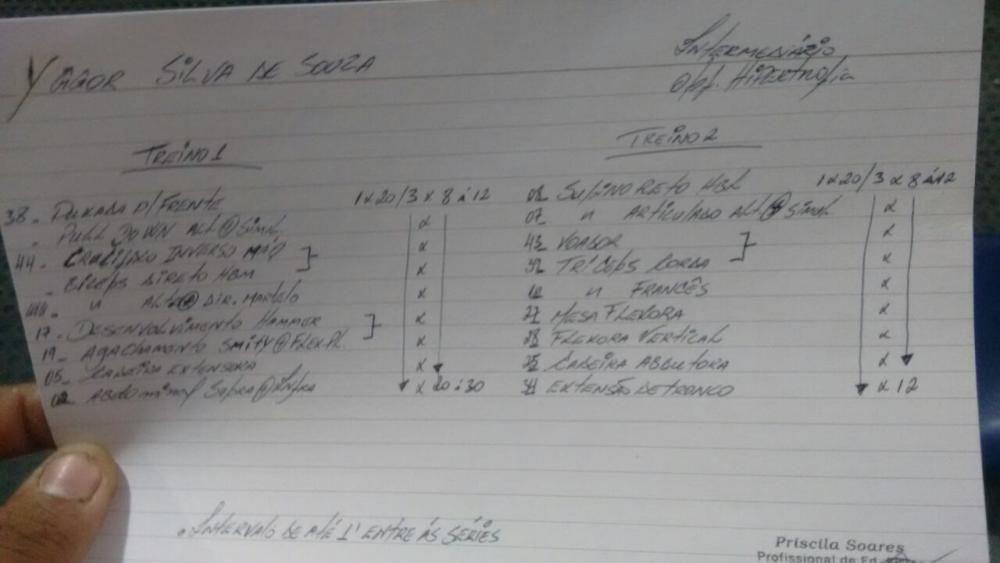 YGGOR SILVA DE SOUZA
INTERMENÁRIO
OBJ. HIPERTROFIA
TREINO 1
1x20/3 x 8 á 12
38- PUXADA P/ FRENTE x
- PULL DOWN ALT@SIMUL x
44- CRUCIFIXO INVERSO MÁQ x
- BÍCEPS DIRETO HBM x
" ALT@DIR. MARTELO x
17- DESENVOLVIMENTO HAMMER x
19- AGACHAMENTO SMITY@FLEX.PL x
05- CADEIRA EXTENSORA x
02- ABDOMINAL SUPRA@INFRA x 20 á 30
TREINO 2
1x20/3 x 8 á 12
SUPINO RETO HBL x
07- " ARTICULADO ALT@SIMUL x
43- VOADOR x
TRÍCEPS CORDA x
" FRANCÊS x
MESA FLEXORA x
FLEXORA VERTICAL x
CADEIRA ABDUTORA x
EXTENSÃO DE TRONCO x 12
. INTERVALO DE ATÉ 1' ENTRE ÀS SÉRIES
Priscila Soares
Profissional de Ed.